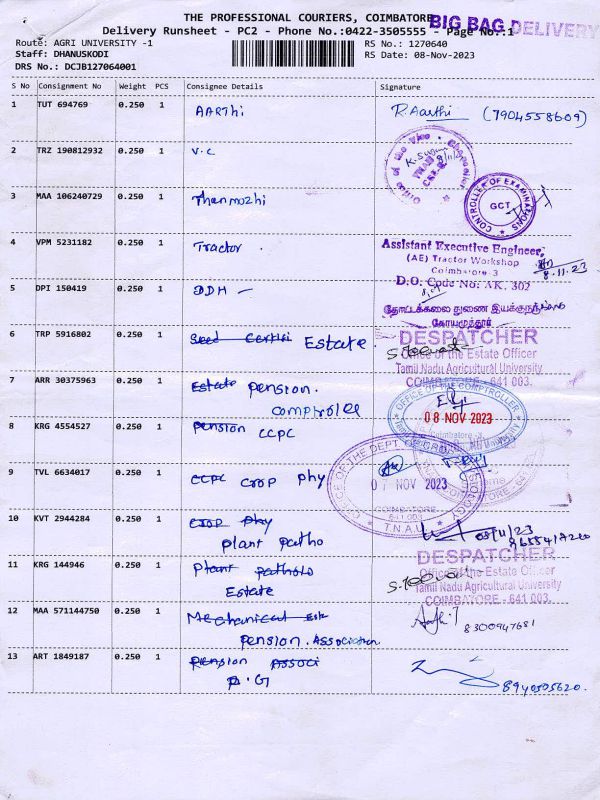 THE PROFESSIONAL COURIERS, COIMBATORE
BIG BAG DELIVERY
Delivery Runsheet - PC2 - Phone No.:0422-3505555 - Page No.:1
Route: AGRI UNIVERSITY -1
RS No.: 1270640
Staff: DHANUSKODI
RS Date: 08-Nov-2023
DRS No.: DCJB127064001
S No Consignment No Weight PCS Consignee Details Signature
1 TUT 694769 0.250 1 AARTHi R.Aarthi (7904558609)
2 TRZ 190812932 0.250 1 V.C
Office of the Vice - Chancellor
3 MAA 106240729 0.250 1 Thenmozhi
CONTROLLER OF EXAMINATIONS
GCT
4 VPM 5231182 0.250 1 Tractor
Assistant Executive Engineer,
(AE) Tractor Workshop
Coimbatore-3
8.11.23
D.O. Code No: AK. 302
5 DPI 150419 0.250 1 DDH -
தோட்டக்கலை துணை இயக்குநர்
கோயமுத்தூர்
6 TRP 5916802 0.250 1 Seed Certifi Estate.
DESPATCHER
Office of the Estate Officer
Tamil Nadu Agricultural University
COIMBATORE - 641 003.
7 ARR 30375963 0.250 1 Estate pension.
comptroller
OFFICE OF THE COMPTROLLER
08 NOV 2023
8 KRG 4554527 0.250 1 pension CCPC
9 TVL 6634017 0.250 1 CCPC crop phy
OFFICE OF THE DEPT. OF CROP PHYSIOLOGY
07 NOV 2023
COIMBATORE
T.N.A.U
10 KVT 2944284 0.250 1 crop phy
plant patho
08/11/23
11 KRG 144946 0.250 1 Plant patholo
Estate
DESPATCHER
Office of the Estate Officer
Tamil Nadu Agricultural University
COIMBATORE - 641 003.
12 MAA 571144750 0.250 1 Mechanical
pension. Association
8300947681
13 ART 1849187 0.250 1 pension Associ
P.G